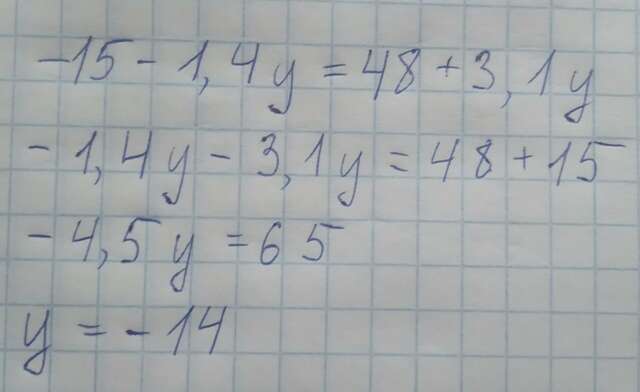 -15 - 1,4y = 48 + 3,1y
- 1,4y - 3,1y = 48 + 15
- 4,5y = 65
y = - 14